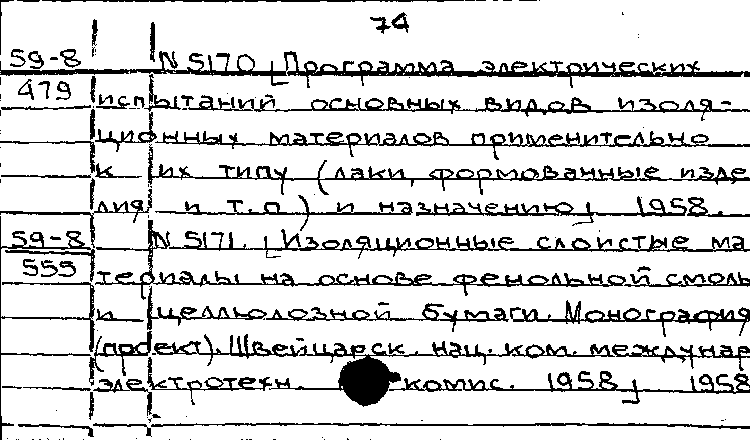 74
59-8 N 5170 [Программа электрических
479 испытаний основных видов изоля-
ционных материалов применительно
к их типу (лаки, формованные изде
лия и т.п) и назначению] 1958.
59-8 N 5171. [Изоляционные слоистые ма
555 териалы на основе фенольной смолы
и целлюлозной бумаги. Монография
(проект). Швейцарск. нац. ком. междунар
электротехн. комис. 1958] 1958